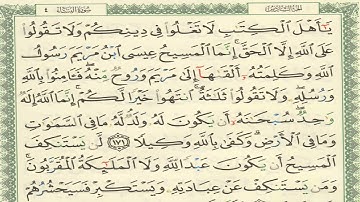 سورة النساء ٤
يَٰٓأَهْلَ ٱلْكِتَٰبِ لَا تَغْلُوا۟ فِى دِينِكُمْ وَلَا تَقُولُوا۟
عَلَى ٱللَّهِ إِلَّا ٱلْحَقَّ إِنَّمَا ٱلْمَسِيحُ عِيسَى ٱبْنُ مَرْيَمَ رَسُولُ
ٱللَّهِ وَكَلِمَتُهُۥٓ أَلْقَىٰهَآ إِلَىٰ مَرْيَمَ وَرُوحٌ مِّنْهُ فَـَٔامِنُوا۟ بِٱللَّهِ
وَرُسُلِهِۦ وَلَا تَقُولُوا۟ ثَلَٰثَةٌ ٱنتَهُوا۟ خَيْرًا لَّكُمْ إِنَّمَا ٱللَّهُ إِلَٰهٌ
وَٰحِدٌ سُبْحَٰنَهُۥٓ أَن يَكُونَ لَهُۥ وَلَدٌ لَّهُۥ مَا فِى ٱلسَّمَٰوَٰتِ
وَمَا فِى ٱلْأَرْضِ وَكَفَىٰ بِٱللَّهِ وَكِيلًا ١٧١ لَّن يَسْتَنكِفَ
ٱلْمَسِيحُ أَن يَكُونَ عَبْدًا لِّلَّهِ وَلَا ٱلْمَلَٰٓئِكَةُ ٱلْمُقَرَّبُونَ
وَمَن يَسْتَنكِفْ عَنْ عِبَادَتِهِۦ وَيَسْتَكْبِرْ فَسَيَحْشُرُهُمْ